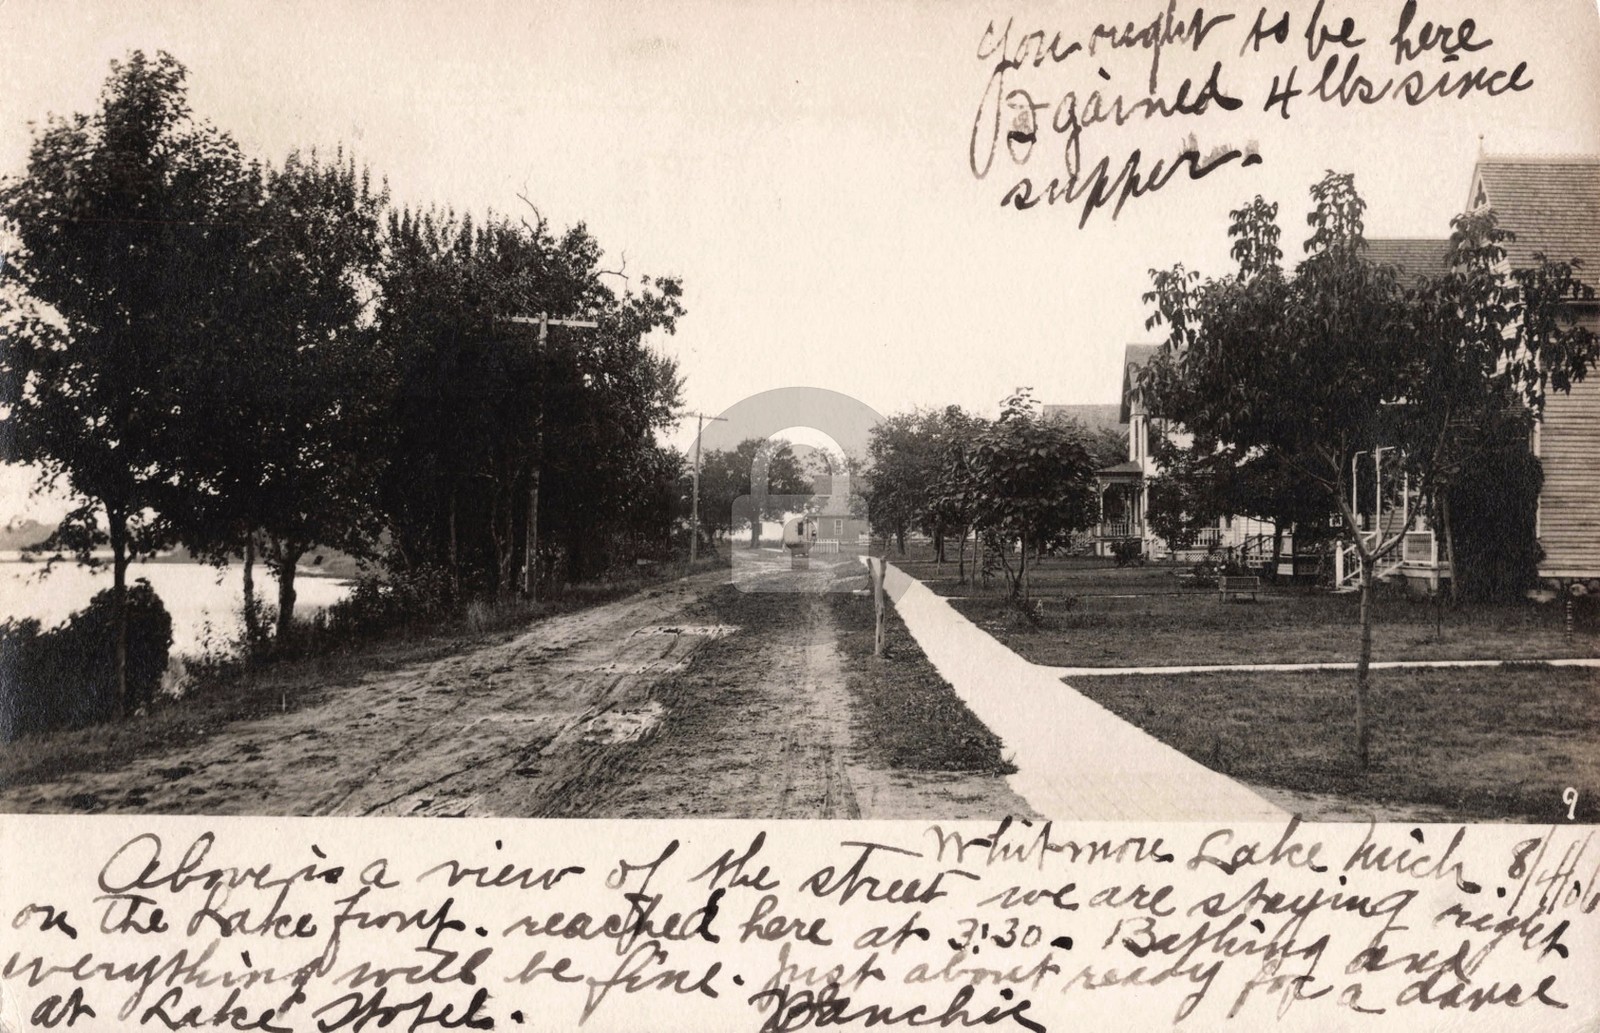 You ought to be here
I gained 4 lbs since
supper.
9
Whitmore Lake Mich. 8/4/06
Above is a view of the street we are staying right
on the Lake front. reached here at 3:30. Bathing and
everything will be fine. Just about ready for a dance
at Lake Hotel. Blanchie